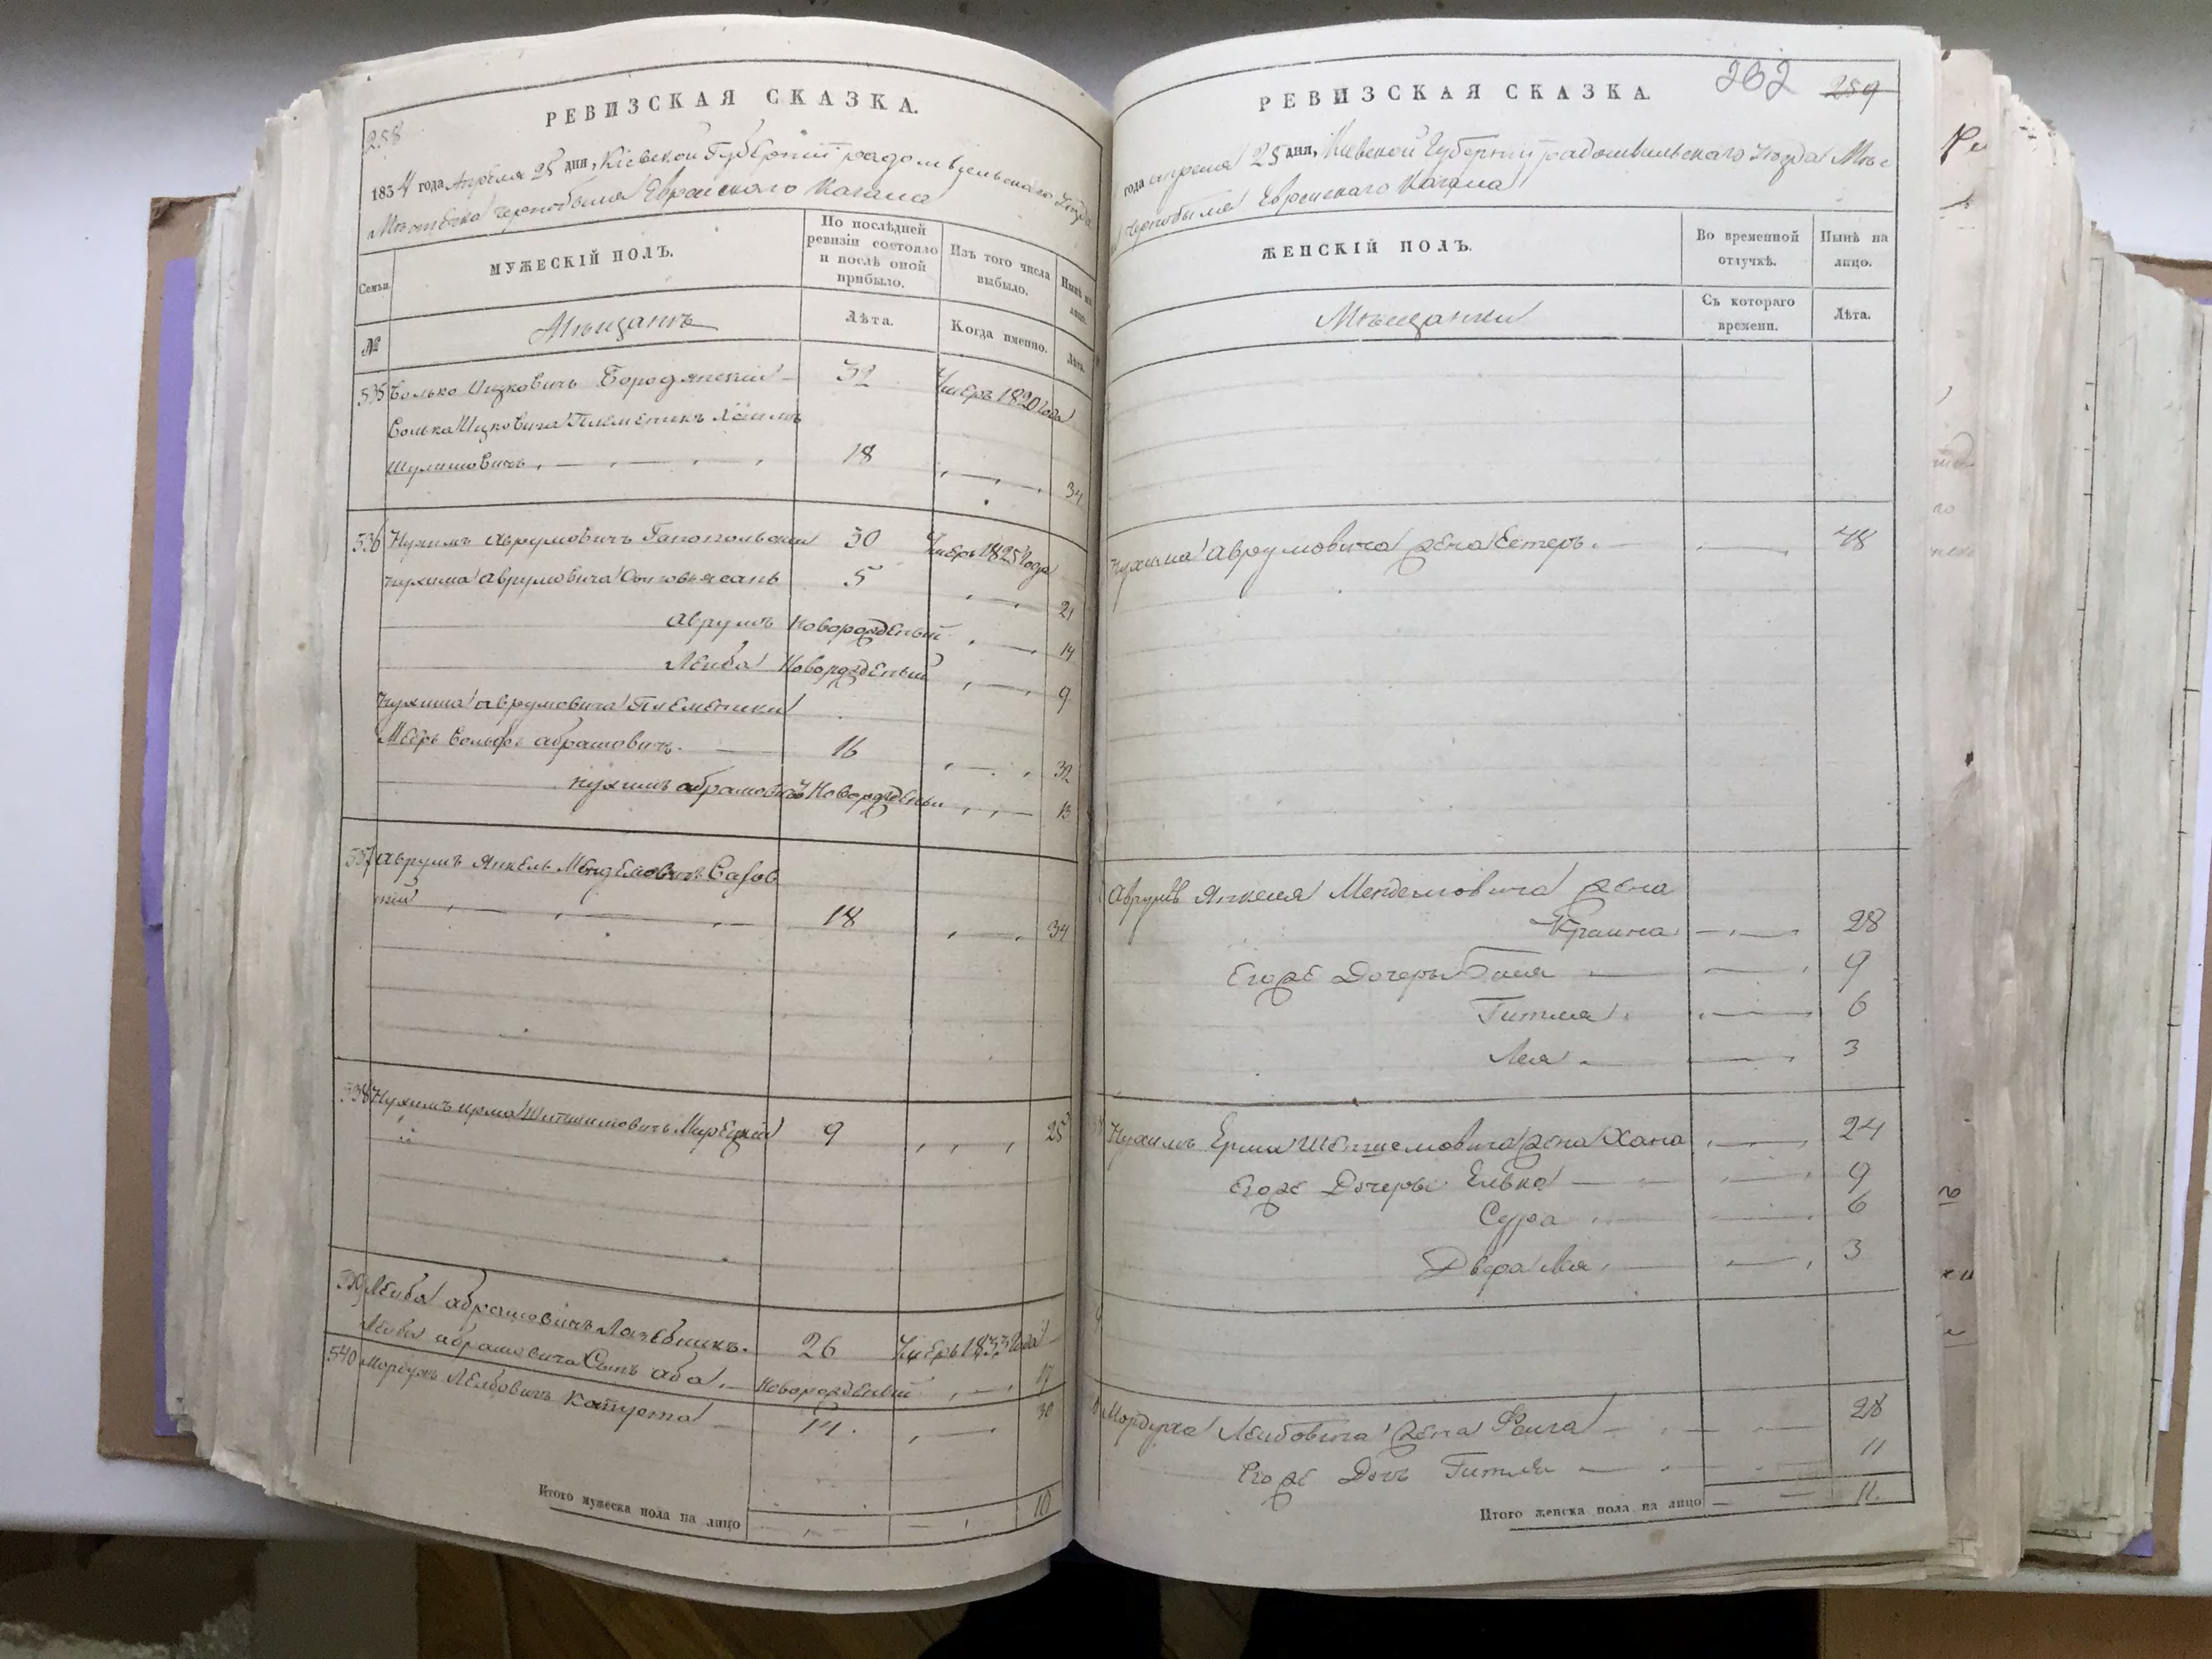 258
РЕВИЗСКАЯ СКАЗКА.
1834 года Апреля 25 дня, Кіевской Губерніи радомысльского Уезда
Местечка чернобыля Еврейского Кагала
Семьи.
МУЖЕСКІЙ ПОЛЪ.
По послѣдней ревизіи состояло и послѣ оной прибыло.
Изъ того числа выбыло.
Нынѣ на лицо.
№
Мещанъ
Лѣта.
Когда именно.
Лѣта.
535 Волько Ицковичъ Бородянский 32 Умеръ 1820 года
Волька Ицковича Племеникъ Хаимъ
Шулимовичъ 18 34
536 Нухимъ Аврумовичъ 30 Умеръ 1825 Года
Нухима Аврумовича Сыновья 5 21
Аврумъ Новорожденый 14
Лейба Новорожденый 9
Нухима аврумовича Племеники
Мееръ Вольфъ абрамовичъ 16 32
нухимъ абрамовичъ Новорожденый 13
537 Аврумъ Янкель Менделовичъ
18 34
538 Нухимъ 9 25
539 Лейба абрамовичъ Лазебникъ 26 Умеръ 1833 Года
Лейбы абрамовича Сынъ аба Новорожденый 17
540 Мордухъ Лейбовичъ Капуста 14 30
Итого мужеска пола на лицо 10
РЕВИЗСКАЯ СКАЗКА.
262 259
года апреля 25 дня, Киевской Губернии радомысльского Уезда Мес
Чернобыля Еврейского Кагала
ЖЕНСКІЙ ПОЛЪ.
Во временной отлучкѣ.
Нынѣ на лицо.
Мещанки
Съ котораго времени.
Лѣта.
Нухима Аврумовича жена Естеръ 48
Аврумъ Янкеля Менделовича жена
Фраина 28
Егоже Дочеры 9
Гитля 6
Лея 3
Нухимъ Ерма жена Хана 24
Егоже Дочеры Елька 9
Сура 6
Двера Лея 3
Мордуха Лейбовича жена Фейга 28
Егоже Дочь Гитля 11
Итого женска пола на лицо 11.